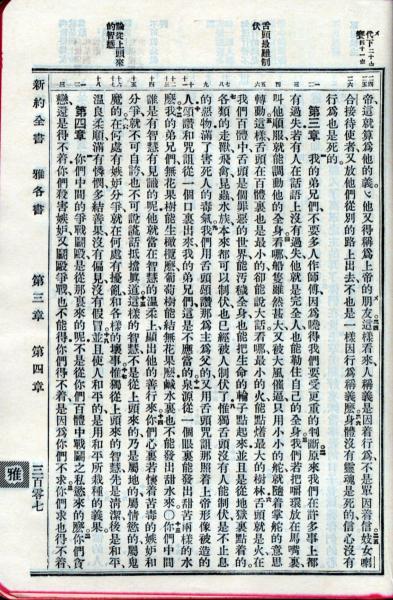 代下二十
舌頭最難制伏
論從上頭來的智慧
帝這就算為他的義。他又得稱為上帝的朋友這樣看來人稱義是因着行為不是單因着信妓女喇
合接待使者又放他們從別的路上出去不也是一樣因行為稱義麼身體沒有靈魂是死的信心沒有
行為也是死的。
第三章 我的弟兄們不要多人作師傅因為曉得我們要受更重的判斷原來我們在許多事上都
有過失若有人在話語上沒有過失他就是完全人也能勒住自己的全身我們若把嚼環放在馬嘴裏
叫他順服就能調動他的全身看哪船隻雖然甚大又被大風催逼只用小小的舵就隨着掌舵的意思
轉動這樣舌頭在百體裏也是最小的卻能說大話看哪最小的火能點着最大的樹林舌頭就是火在
我們百體中舌頭是個罪惡的世界能污穢全身也能把生命的輪子點起來並且是從地獄裏點着的
各類的走獸飛禽昆蟲水族本來都可以制伏也已經被人制伏了惟獨舌頭沒有人能制伏是不止息
的惡物滿了害死人的毒氣我們用舌頭頌讚那為主為父的又用舌頭咒詛那照着上帝形像被造的
人頌讚和咒詛從一個口裏出來我的弟兄們這是不應當的泉源從一個眼裏能發出甜苦兩樣的水
麼我的弟兄們無花果樹能生橄欖麼葡萄樹能結無花果麼鹹水裏也不能發出甜水來○你們中間
誰是有智慧有見識的呢他就當在智慧的溫柔上顯出他的善行來你們心裏若懷着苦毒的嫉妒和
分爭就不可自誇也不可說謊話抵擋真道這樣的智慧不是從上頭來的乃是屬地的屬情慾的屬鬼
魔的在何處有嫉妒分爭就在何處有擾亂和各樣的壞事惟獨從上頭來的智慧先是清潔後是和平
溫良柔順滿有憐憫多結善果沒有偏見沒有假冒並且使人和平的是用和平所栽種的義果。
第四章 你們中間的爭戰鬬毆是從那裏來的呢不是從你們百體中戰鬬之私慾來的麼你們貪
戀還是得不着你們殺害嫉妒又鬬毆爭戰也不能得你們得不着是因為你們不求你們求也得不着
新約全書 雅各書 第三章 第四章 三百零七
雅